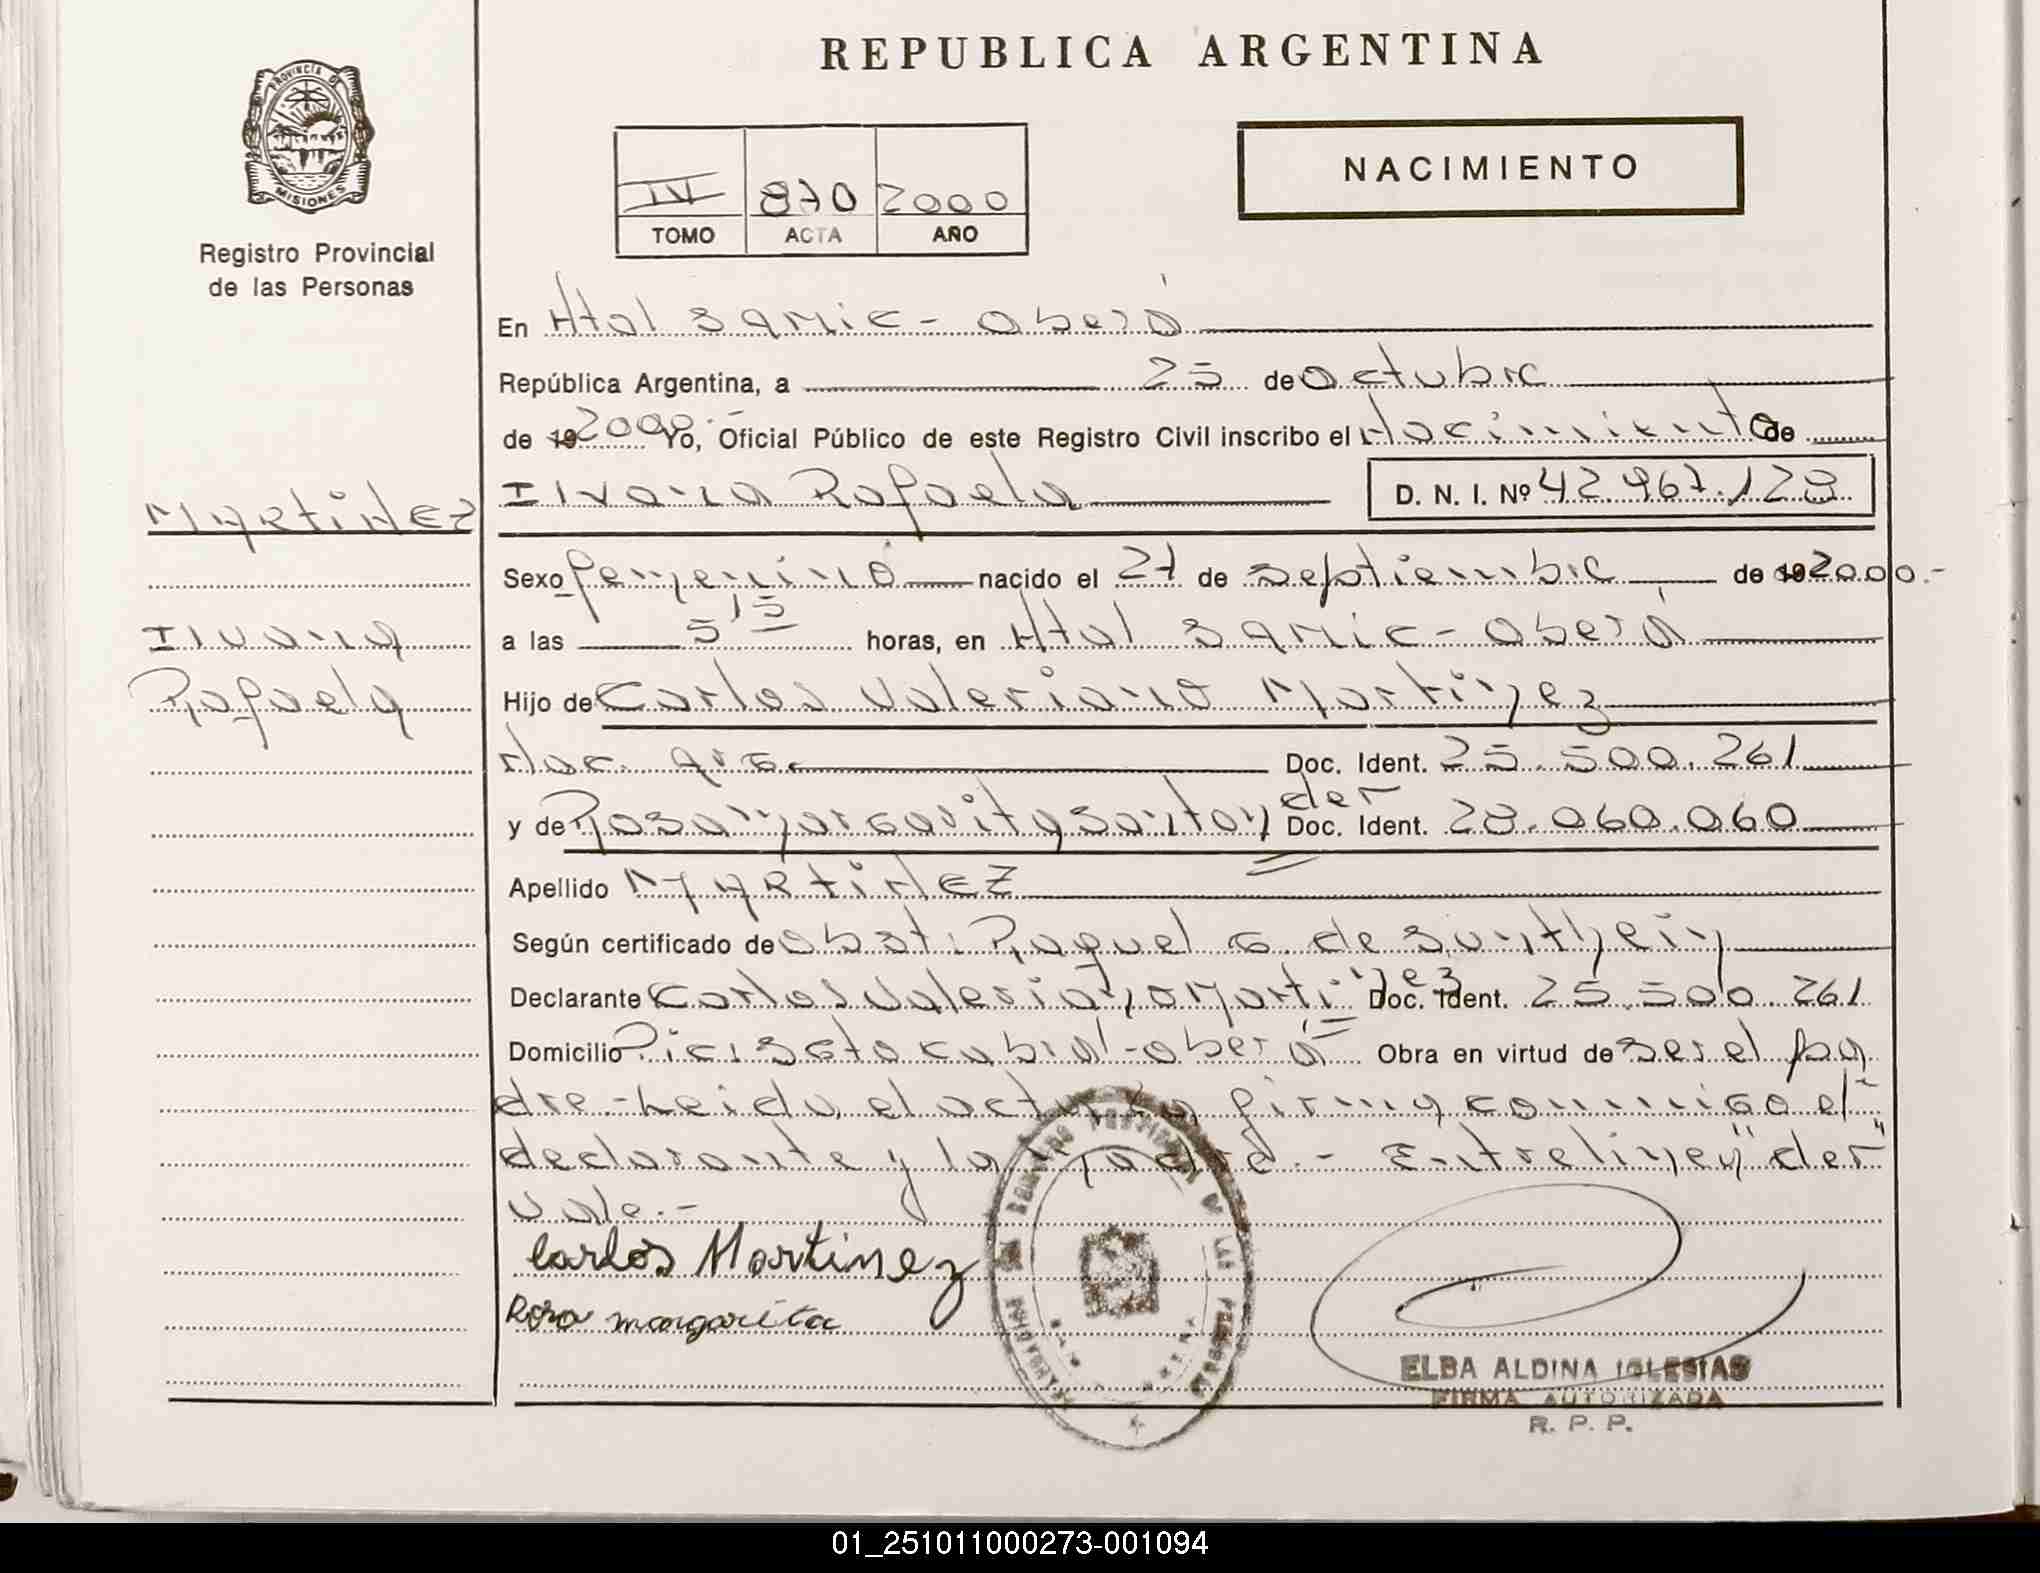 REPUBLICA ARGENTINA
PROVINCIA DE MISIONES
Registro Provincial
de las Personas
NACIMIENTO
IV 870 2000
TOMO ACTA AÑO
En Htal Samic - Oberá
República Argentina, a 25 de Octubre
de 19 2000.- Yo, Oficial Público de este Registro Civil inscribo el Nacimiento de
Nivaria Rafaela D. N. I. Nº 42.967.128
MARTINEZ
Sexo femenino nacido el 27 de septiembre de 19 2000.-
a las 5 15 horas, en Htal Samic - Oberá
Rafaela
Hijo de Carlos Valeriano Martinez
Nac. arg. Doc. Ident. 25.500.261
y de Rosa Margarita Santander Doc. Ident. 28.060.060
Apellido MARTINEZ
Según certificado de Obst. Raquel G. de Sunthein
Declarante Carlos Valeriano Martinez Doc. Ident. 25.500.261
Domicilio Pic. Sgto Cabral - Oberá Obra en virtud de ser el pa
dre.- Leida el acta la firma conmigo el
declarante y la madre.- Entrelinea "der"
vale.-
Carlos Martinez
Rosa margarita
ELBA ALDINA IGLESIAS
FIRMA AUTORIZADA
R. P. P.
01_251011000273-001094